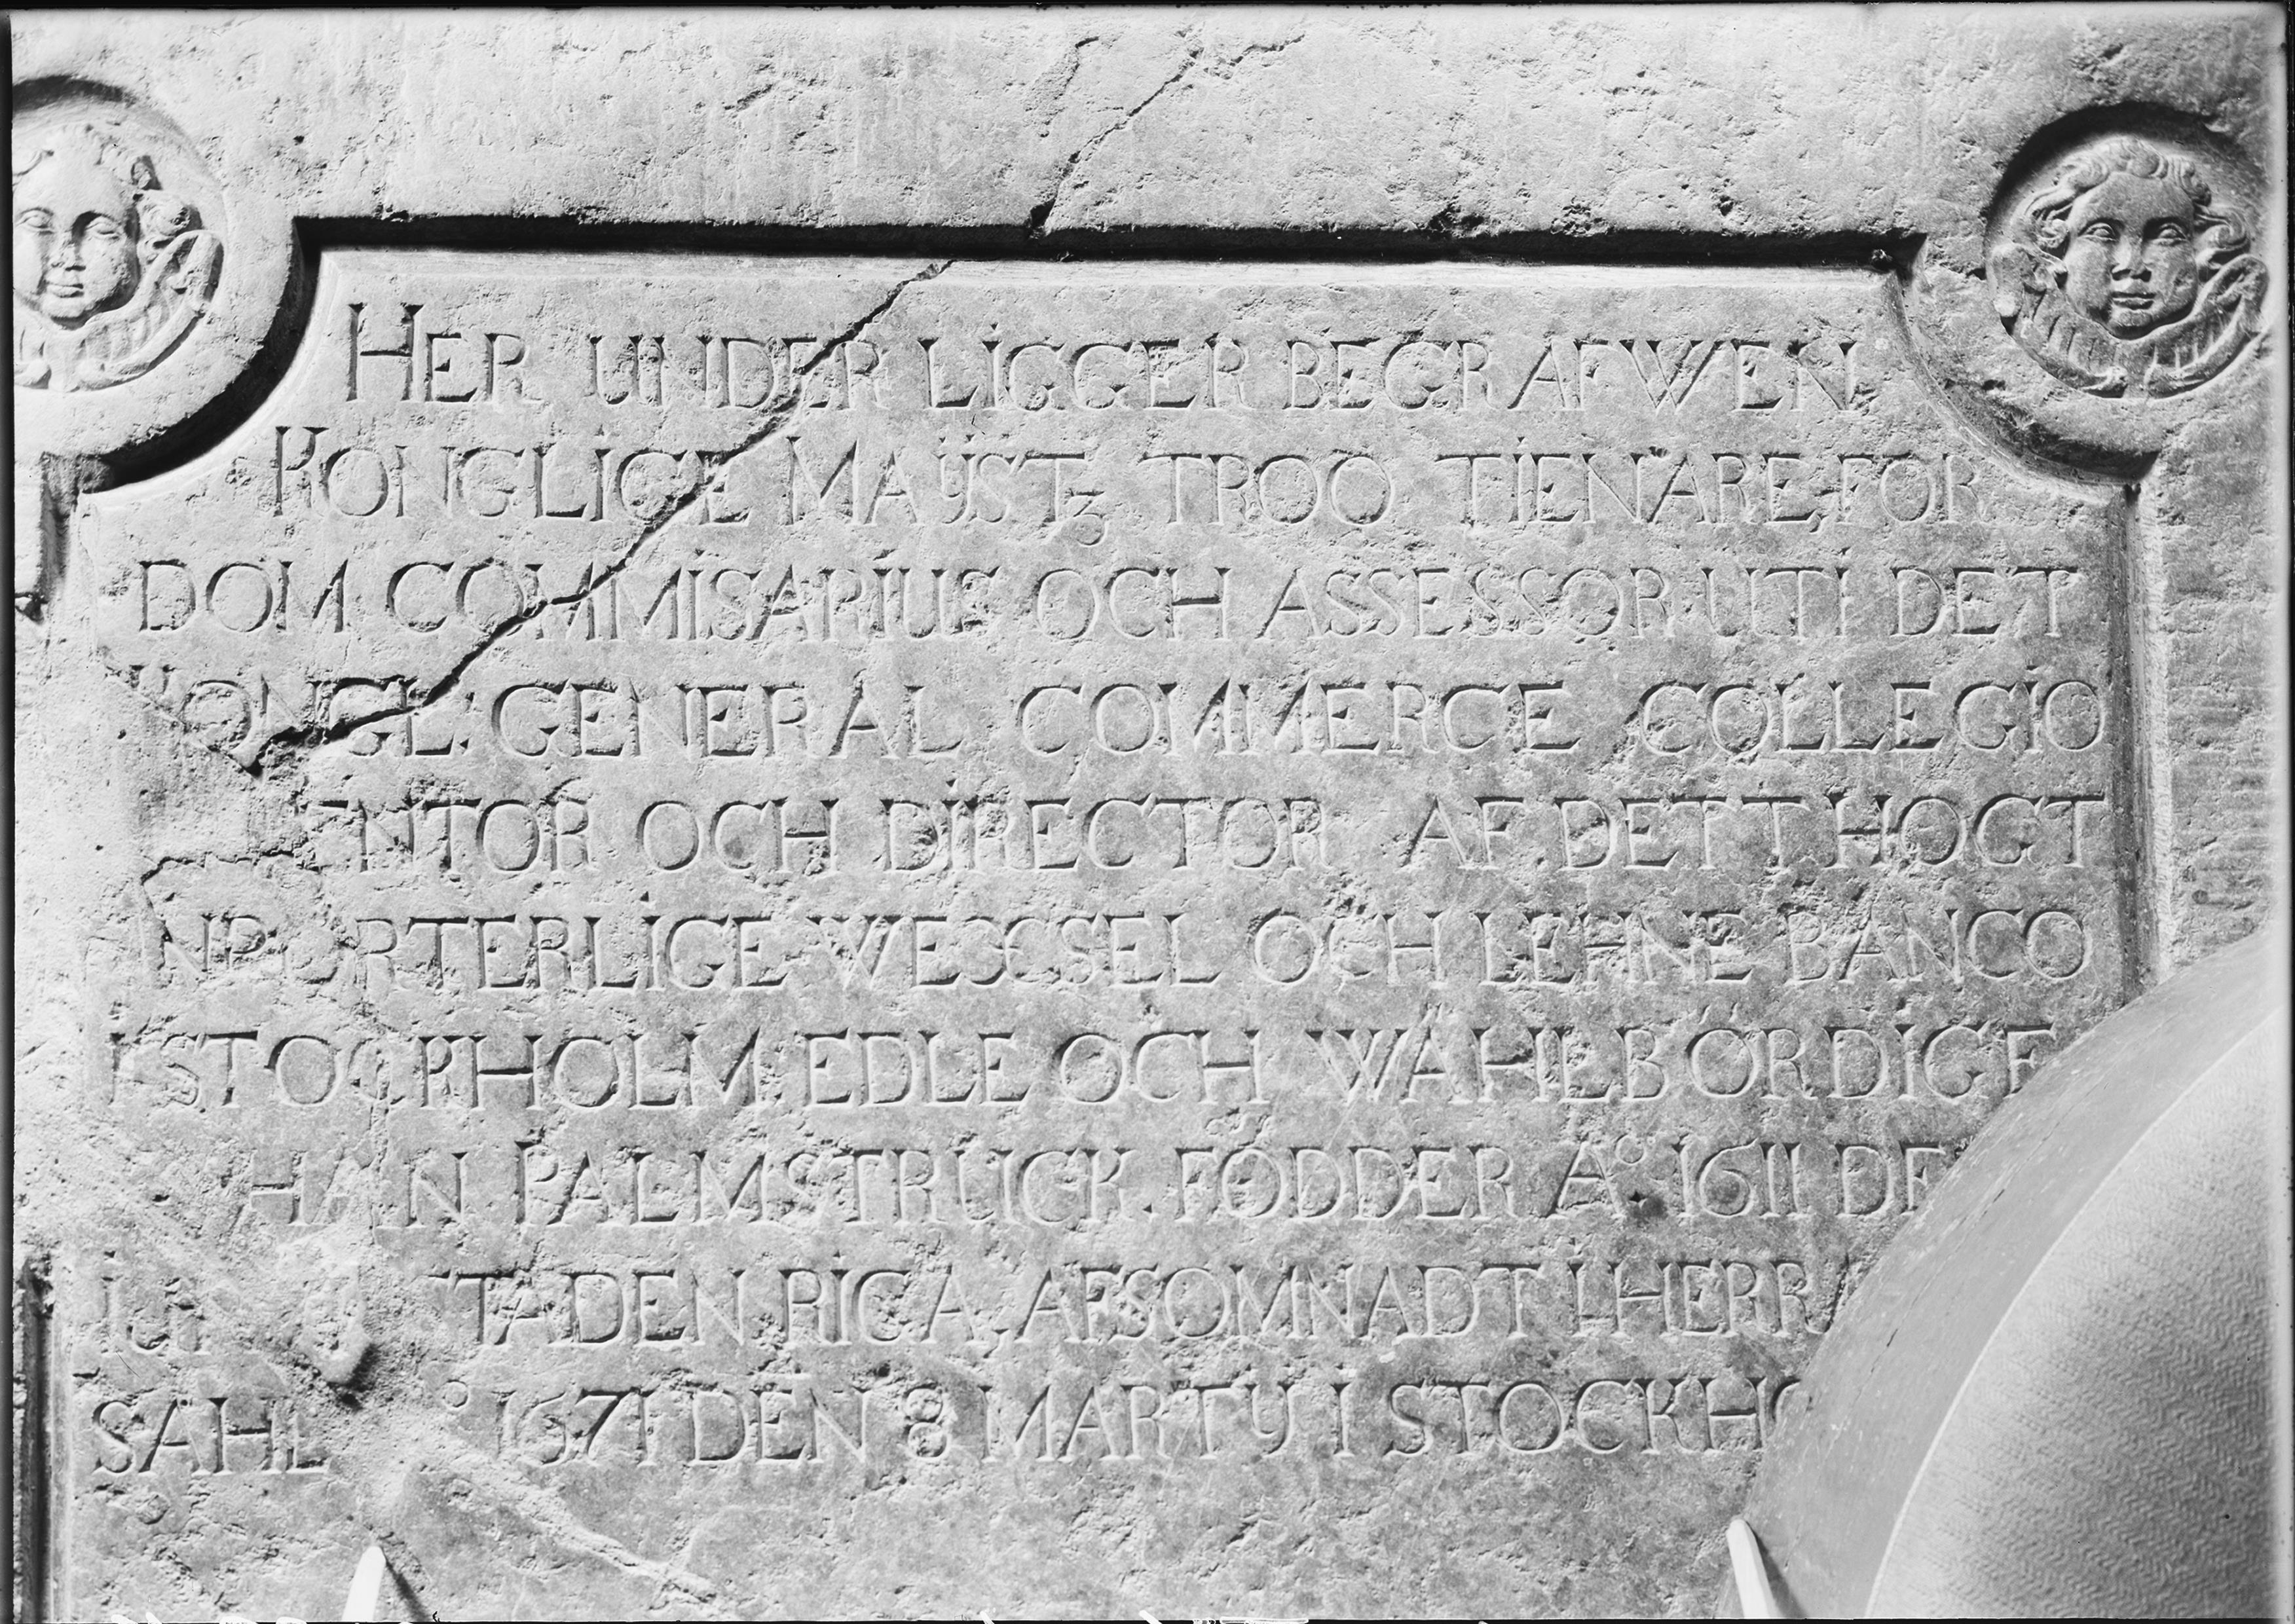 HER UNDER LIGGER BEGRAFWEN
KONGLIGE MAŸSTZ TROO TIENARE, FÖR
DOM COMMISARIUS OCH ASSESSOR UTI DET
KONGL: GENERAL COMMERCE COLLEGIO
OCH DIRECTOR AF DETT HÖGT
WEXSEL OCH LEHNE BANCO
I STOCKHOLM EDLE OCH WÄHLBÖRDIGE
HAN PALMSTRUCK. FÖDDER A° 1611
RIGA. AFSOMNADT I HERRA
SÅHL 1671 DEN 8 MARTY I